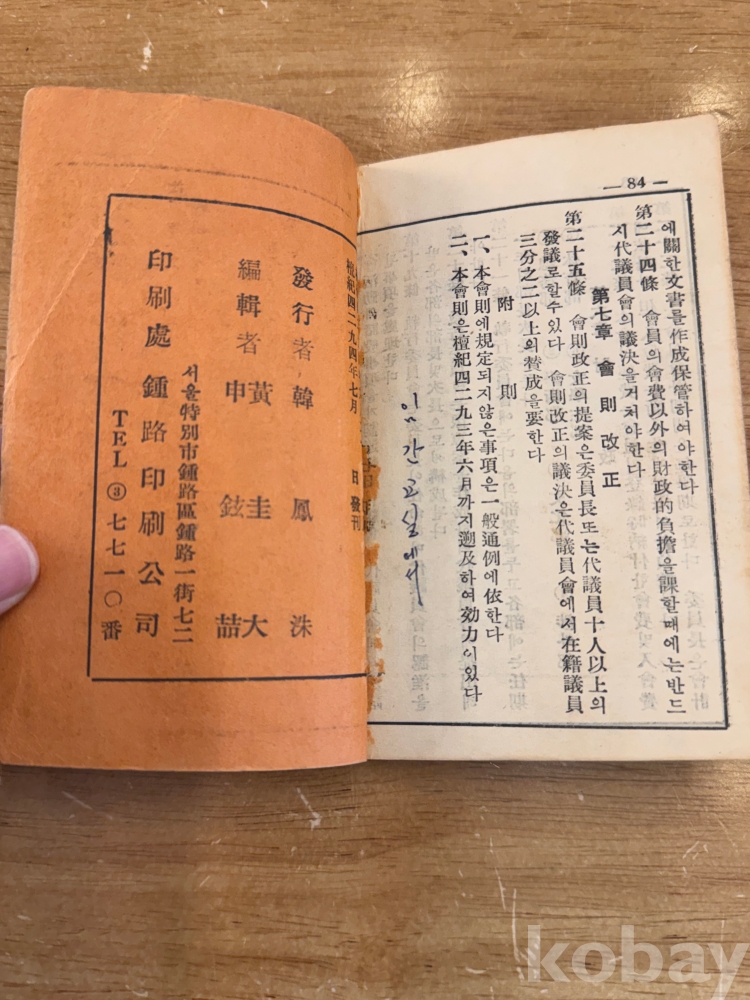 — 84 —
에關한文書를作成保管하여야한다
第二十四條 會員의會費以外의財政的負擔을課할때에는반드
시代議員會의議決을거처야한다
第七章 會則改正
第二十五條 會則政正의提案은委員長또는代議員十人以上의
發議로할수있다 會則改正의議決은代議員會에서在籍議員
三分之二以上의賛成을要한다
附則
一、本會則에規定되지않은事項은一般通例에依한다
二、本會則은檀紀四二九三年六月까지遡及하여効力이있다
간 교실에서
檀紀四二九四年七月 日 發刊
發行者 韓鳳洙
編輯者 黃圭大
申鉉喆
서울特別市鍾路區鍾路一街七二
印刷處 鍾路印刷公司
TEL ③ 七七一〇番
kobay